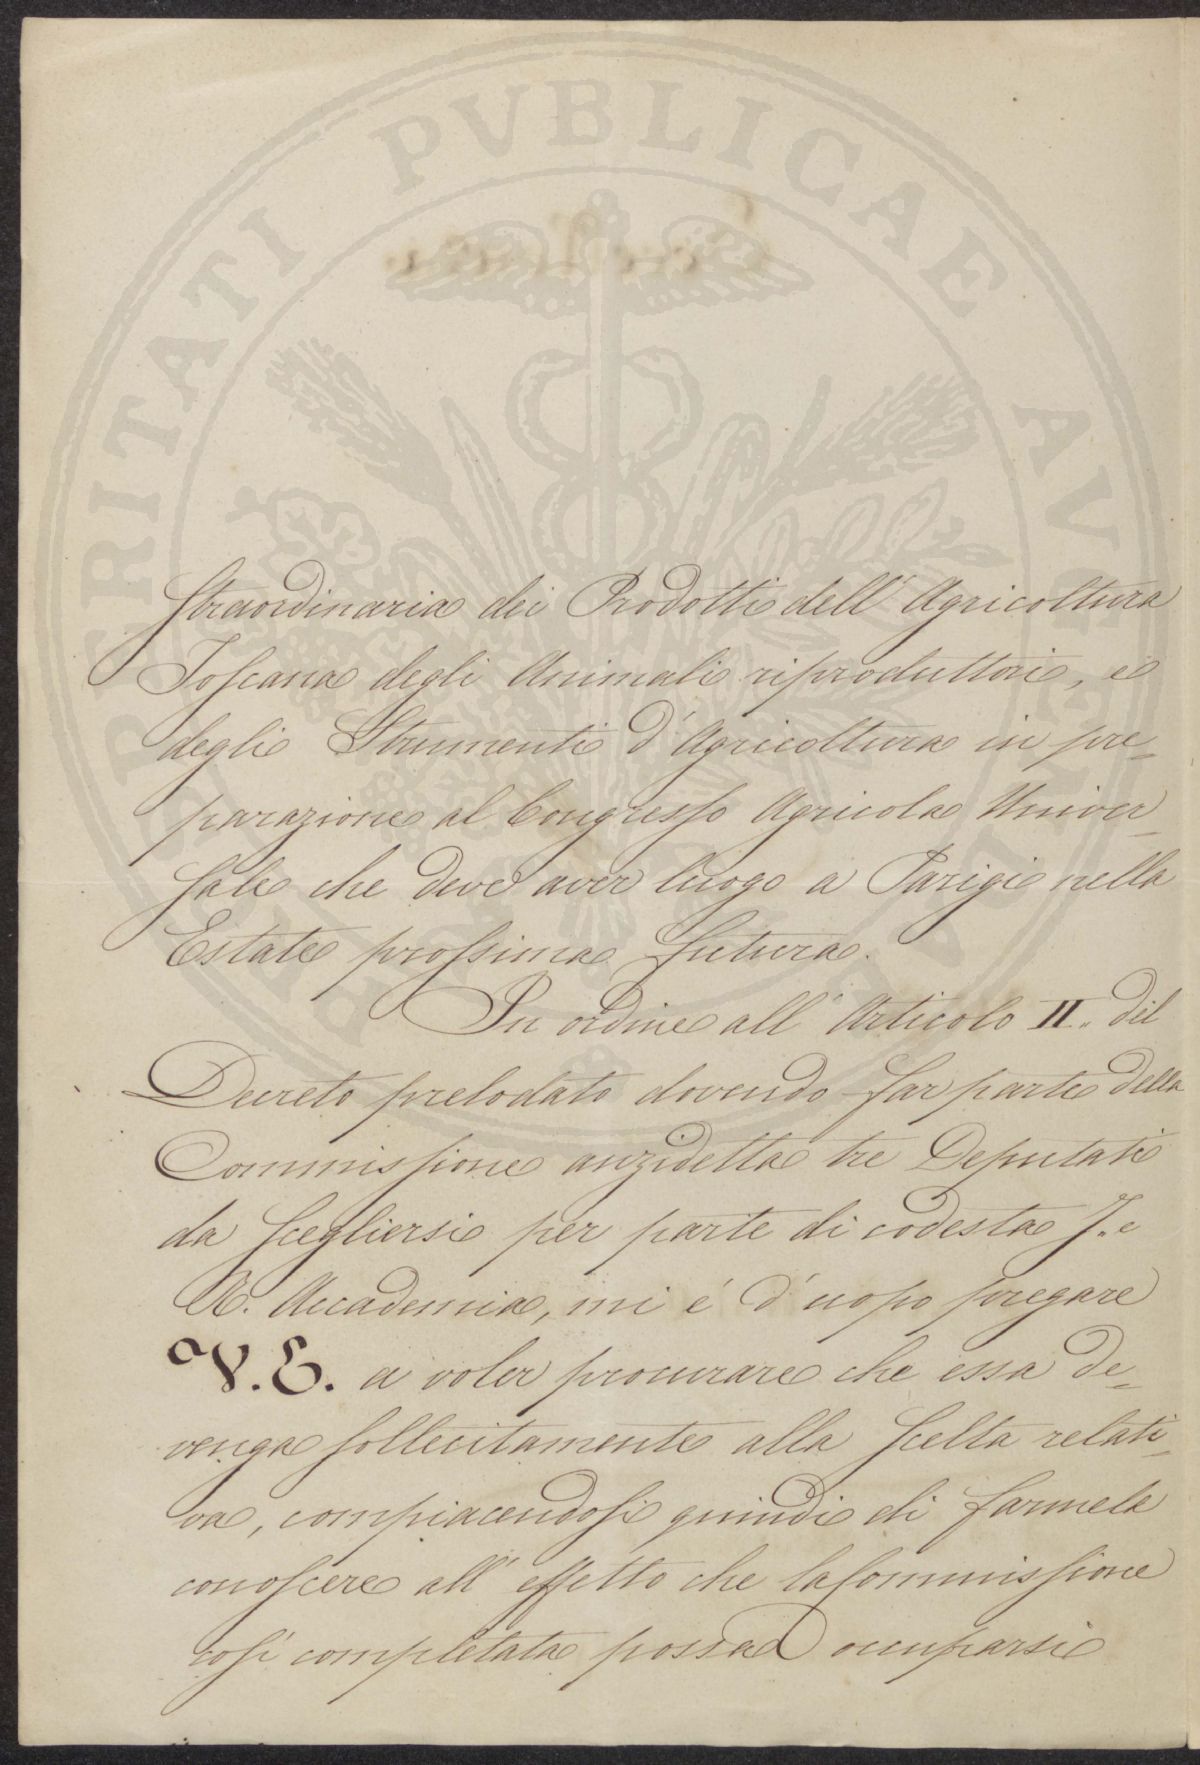 PROSPERITATI PVBLICAE AVGENDAE
Straordinaria dei Prodotti dell' Agricoltura
Toscana degli Animali riproduttori, e
degli Strumenti d'Agricoltura in pre=
parazione al Congresso Agricola Univer=
sale che deve aver luogo a Parigi nella
Estate prossima futura.
In ordine all' Articolo II. del
Decreto prelodato dovendo far parte della
Commissione anzidetta tre Deputati
da scegliersi per parte di codesta I. e
R. Accademia, mi è d'uopo pregare
V. E. a voler procurare che essa de=
venga sollecitamente alla scelta relati=
va, compiacendosi quindi di farmela
conoscere all' effetto che la Commissione
così completata possa occuparsi